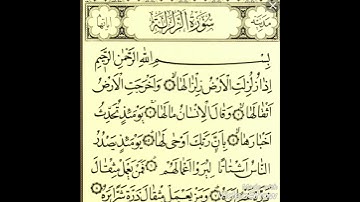 سُورَةُ الزِّلْزَالِ
مَدَنِيَّة
بِسْمِ اللَّهِ الرَّحْمَٰنِ الرَّحِيمِ
إِذَا زُلْزِلَتِ الْأَرْضُ زِلْزَالَهَا وَأَخْرَجَتِ الْأَرْضُ
أَثْقَالَهَا وَقَالَ الْإِنْسَانُ مَالَهَا يَوْمَئِذٍ تُحَدِّثُ
أَخْبَارَهَا بِأَنَّ رَبَّكَ أَوْحَىٰ لَهَا يَوْمَئِذٍ يَصْدُرُ
النَّاسُ أَشْتَاتًا لِيُرَوْا أَعْمَالَهُمْ فَمَنْ يَعْمَلْ مِثْقَالَ
ذَرَّةٍ خَيْرًا يَرَهُ وَمَنْ يَعْمَلْ مِثْقَالَ ذَرَّةٍ شَرًّا يَرَهُ